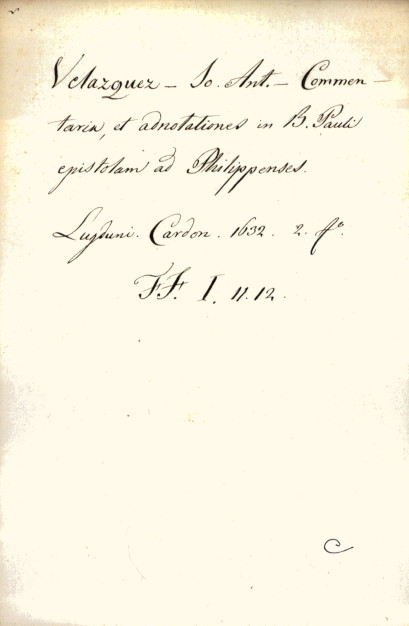 Velazquez – Jo. Ant. – Commen –
taria, et adnotationes in B. Pauli
epistolam ad Philippenses.
Lugduni. Cardon. 1632. 2. fº.
FF. I. 11. 12.
C